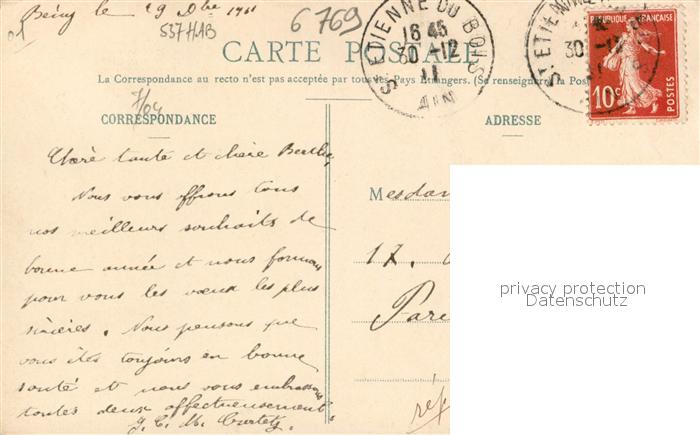 Bény le 29 Dbre 1911
01
537HAB
6769
ST ETIENNE DU BOIS
16 45
30 -12
11
AIN
ST ETIENNE
30 -12
REPUBLIQUE FRANÇAISE
10c
POSTES
CARTE POSTALE
La Correspondance au recto n'est pas acceptée par tous les Pays Etrangers. (Se renseigner à la Poste
7/04
CORRESPONDANCE
ADRESSE
Chère tante et chère Berthe,
Nous vous offrons tous
nos meilleurs souhaits de
bonne année et nous formons
pour vous les vœux les plus
sincères. Nous pensons que
vous êtes toujours en bonne
santé et nous vous embrassons
toutes deux affectueusement.
J. C. M.
Mesdam
17.
Pari
réf
privacy protection
Datenschutz